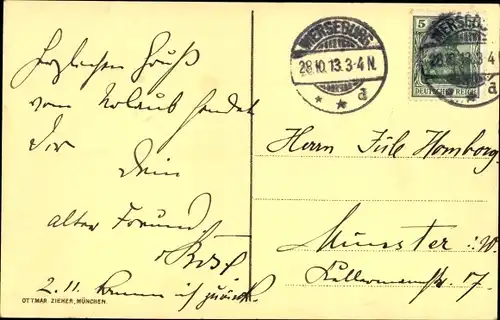 Herzlichen Gruß
vom Urlaub sendet
Dir
Dein
alter Freund
2.11. komme ich zurück.
OTTMAR ZIEHER, MÜNCHEN.
MERSEBURG
28.10.13. 3-4 N.
* * a
5
DEUTSCHES REICH
MERSEB
28.10.13. 3-4
* a
Herrn Homborg
Münster i. W.
7.